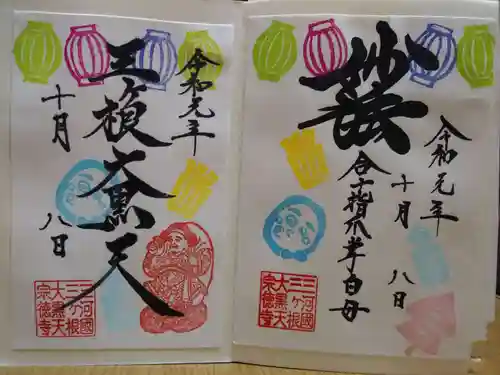 妙法
令和元年
十月 八日
合十指爪掌白母
三河國
三ヶ根
大黒天
宗徳寺
令和元年
大黒天
十月 八日
三河國
三ヶ根
大黒天
宗徳寺